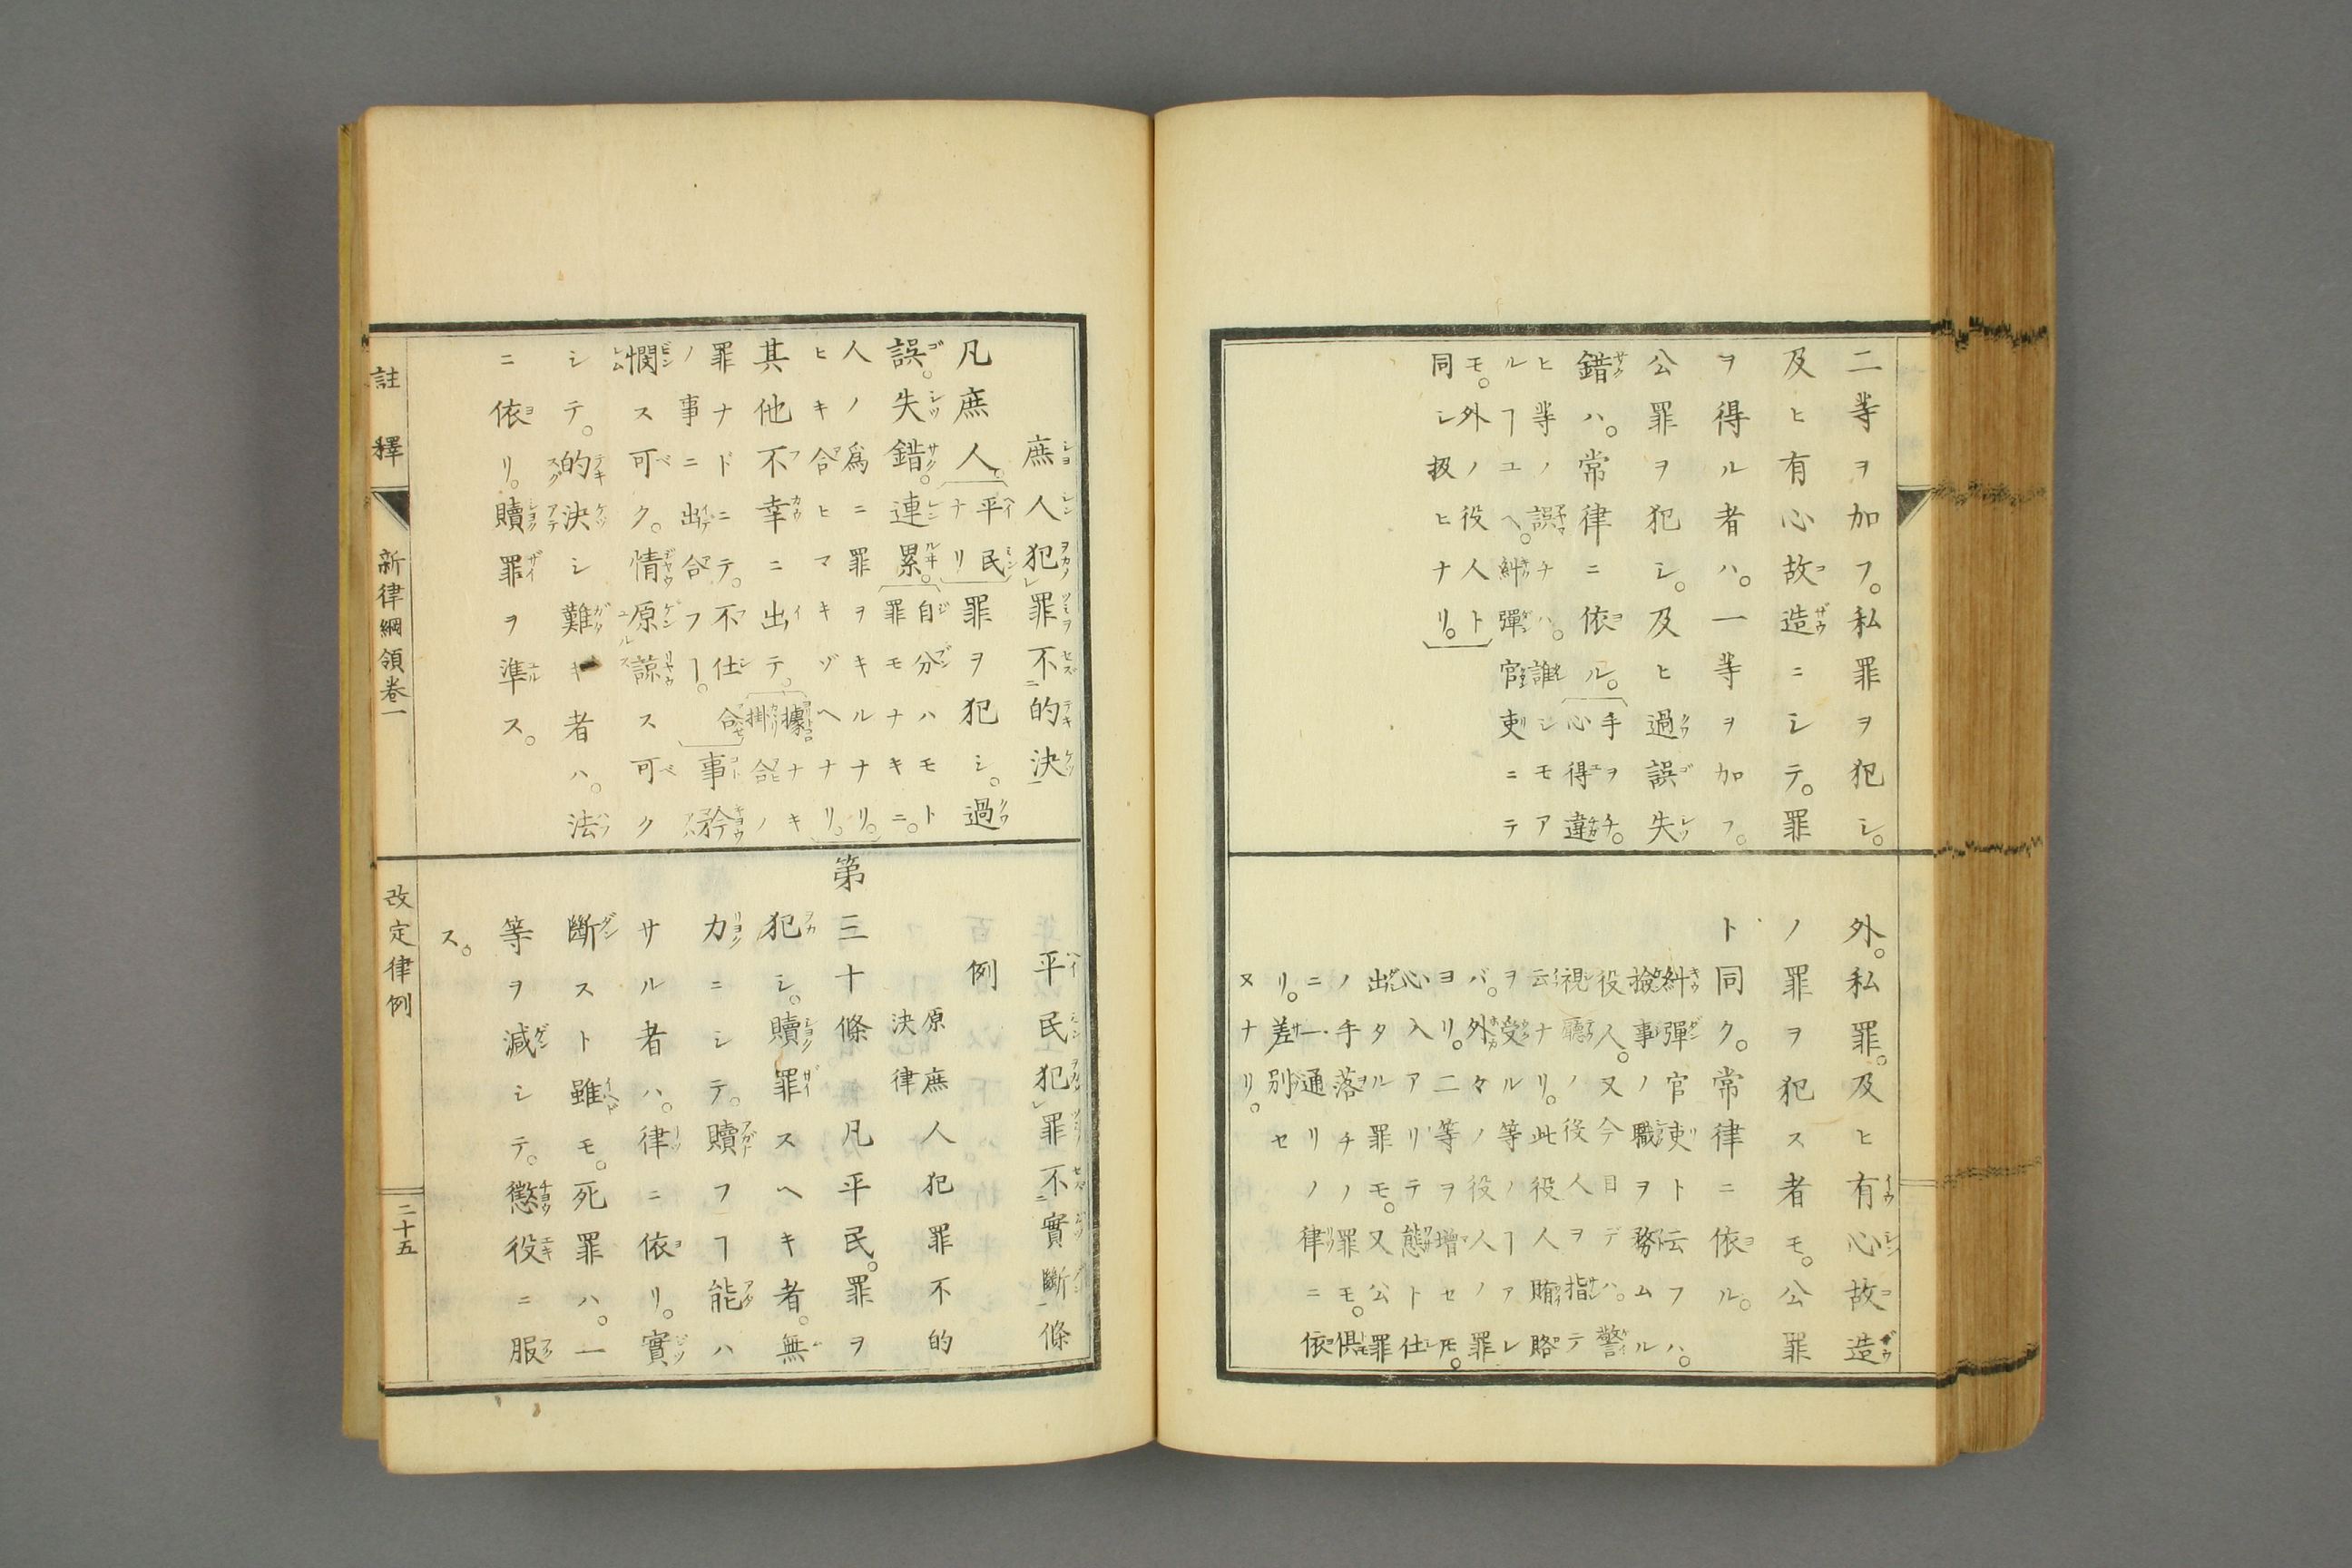 二等ヲ加フ。私罪ヲ犯シ。
及ヒ有心故造ニシテ。罪
ヲ得ル者ハ。一等ヲ加フ。
公罪ヲ犯シ。及ヒ過誤失
錯ハ。常律ニ依ル。手ヲチ。心得違
ヒ等ノ誤チハ。誰シモア
ルヿユヘ。糾彈官吏ニテ
モ。外ノ役人ト
同シ扱ヒナリ。
外。私罪。及ヒ有心故造
ノ罪ヲ犯ス者モ。公罪
ト同ク。常律ニ依ル。
糾彈官吏ト云フハ。
撿事ノ職ヲ務ムル
役人。又今目デハ。警
視廳ノ役人ヲ指テ
云ナリ。此役人賄賂
ヲ受ル等ノヿアレ
バ。外々ノ役人ノ罪
ヨリ。二等ヲ増セ𪜈。
心入アリテ態ト仕
出タル罪モ。又公罪
ノ手落チノ罪モ。倶
ニ一通リノ律ニ依
リ。差別セ
ヌナリ。
庶人犯罪不的決
凡庶人。平民ナリ罪ヲ犯シ。過
誤。失錯。連累。自分ハモトヨリ罪モナキニ。
人ノ爲ニ罪ヲキルナリ。
ヒキ合ヒマキゾヘナリ。
其他不幸ニ出テ。據ナキ掛合ノ
罪ナドニテ。不仕合
ノ事ニ出合フヿ。事矜
憫ス可ク。情原諒ス可ク
シテ。的決シ難キ者ハ。法
ニ依リ。贖罪ヲ準ス。
平民犯罪不實斷條
例
原庶人犯罪不的
決律
第三十條 凡平民。罪ヲ
犯シ。贖罪スヘキ者。無
力ニシテ。贖フヿ能ハ
サル者ハ。律ニ依リ。實
斷スト雖モ。死罪ハ。一
等ヲ減シテ。懲役ニ服
ス。
註釋
新律綱領卷一
改定律例
二十五